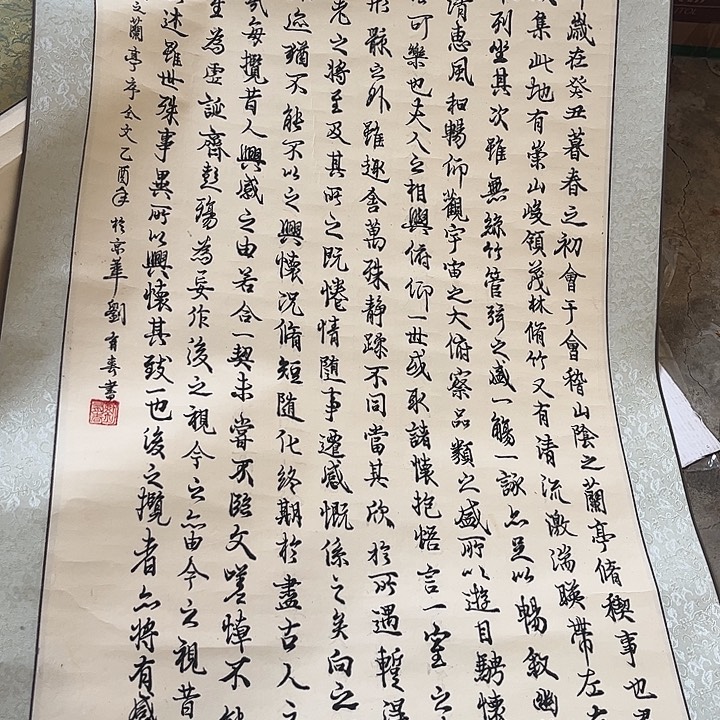 歲在癸丑暮春之初會于會稽山陰之蘭亭脩稧事也
集此地有崇山峻領茂林脩竹又有清流激湍暎帶左右
列坐其次雖無絲竹管弦之盛一觴一詠亦足以暢敘幽
清惠風和暢仰觀宇宙之大俯察品類之盛所以遊目騁懷
可樂也夫人之相與俯仰一世或取諸懷抱悟言一室之
形骸之外雖趣舍萬殊靜躁不同當其欣於所遇蹔得
老之將至及其所之既惓情隨事遷感慨係之矣向之
迹猶不能不以之興懷況脩短隨化終期於盡古人之
每攬昔人興感之由若合一契未嘗不臨文嗟悼不能
為虛誕齊彭殤為妄作後之視今亦由今之視昔
述雖世殊事異所以興懷其致一也後之攬者亦將有感
之蘭亭序全文乙酉年於京華劉壽書